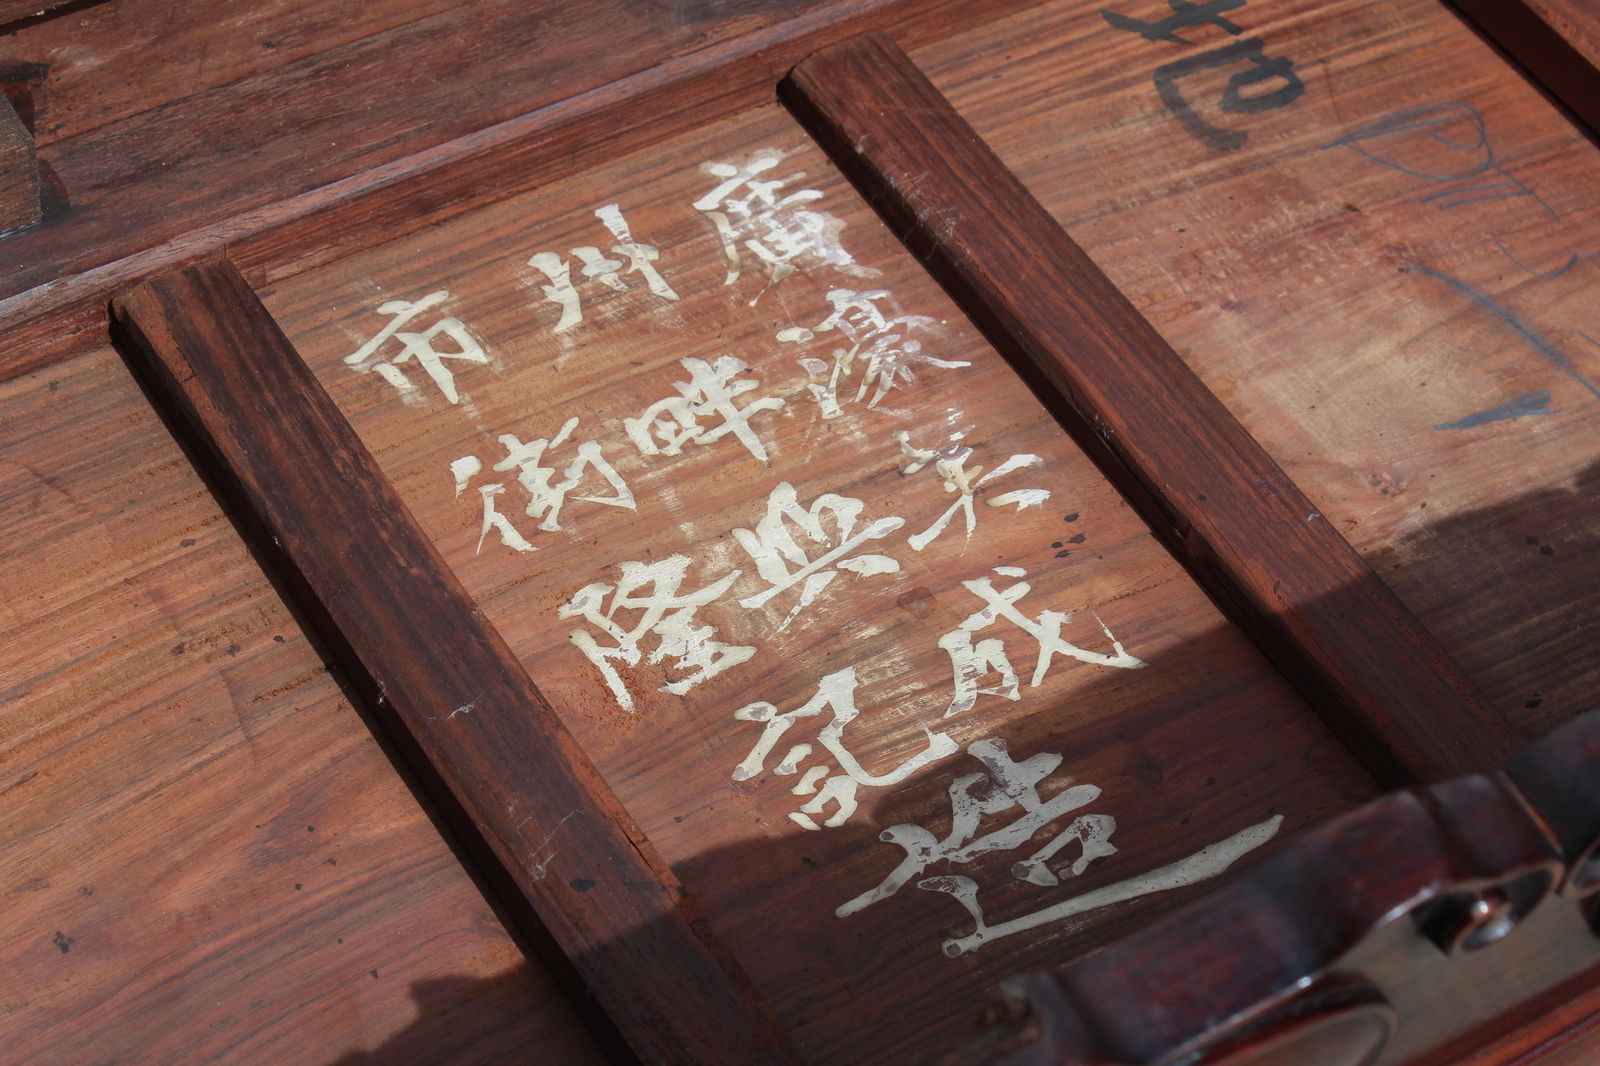 廣州市
濠畔街
興隆
成記
造
地